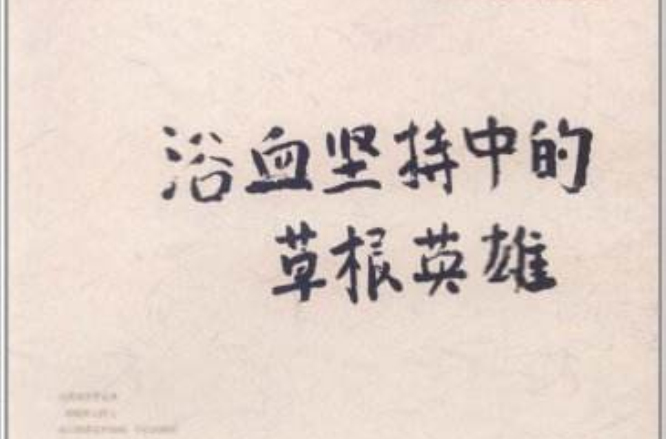 浴血坚持中的
草根英雄